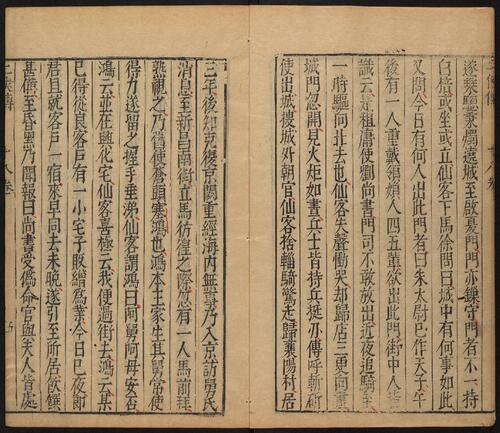 遂乘驄秉燭遶城至啟夏門門亦鏁守門者不一持
白棓或坐或立仙客下馬徐問曰城中有何事如此
又問今日有何人出此門者曰朱太尉已作天子午
後有一人重戴領婦人四五輩欲出此門街中人皆
識云是租庸使劉尚書門司不敢放出近夜追騎至
一時驅向北去也仙客失聲慟哭却歸店三更向盡
城門忽開見火炬如晝兵士皆持兵挺刃傳呼斬斫
使出城搜城外朝官仙客捨輜騎驚走歸襄陽村居
三年後知克復京闕重經海內無事乃入京訪舅氏
消息至新昌南街立馬彷徨之際忽有一人馬前拜
熟視之乃舊使蒼頭塞鴻也鴻本王家生其舅常使
得力遂留之握手垂涕仙客謂鴻曰阿舅阿母安否
鴻云並在興化宅仙客喜極云我便過街去鴻云某
已得從良客戶有一小宅子販繒為業今日已夜郎
君且就客戶一宿來早同去未晚遂引至所居飲饌
甚備至昏黑乃聞報曰尚書受偽命官與夫人皆處